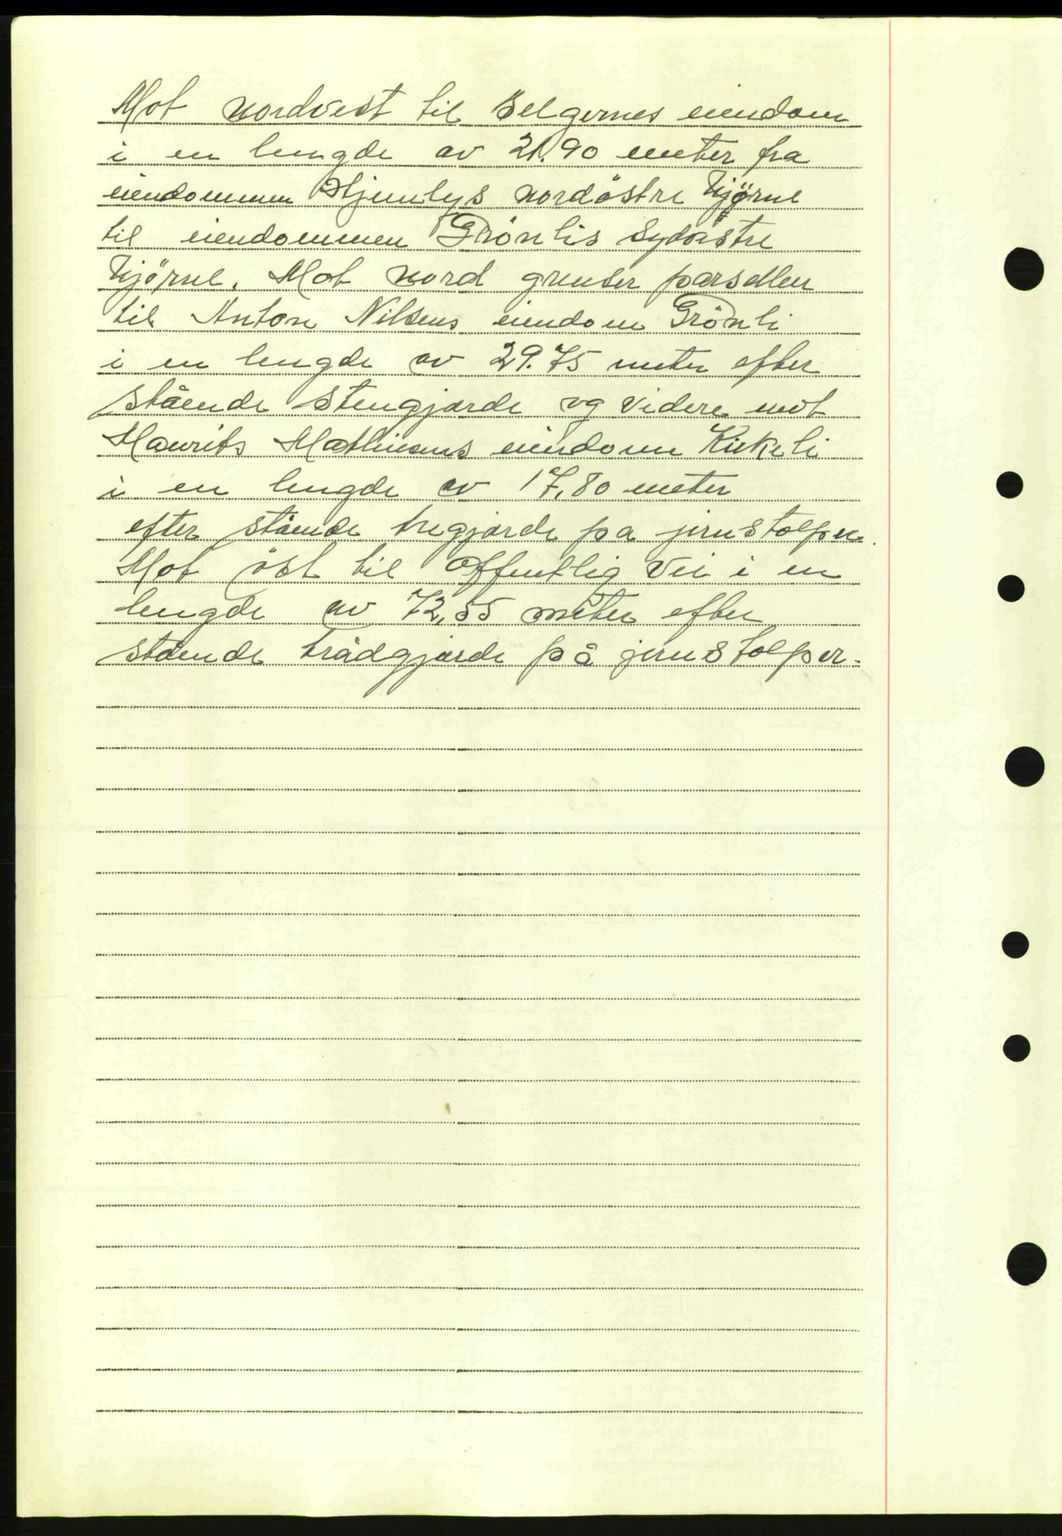 Mot nordvest til Selgernes eiendom
i en lengde av 21.90 meter fra
eiendommen Hjemlys nordöstre hjørne
til eiendommen Grönlis Sydvestre
hjørne. Mot nord grenser parsellen
til Anton Nilsens eiendom Grönli
i en lengde av 29.75 meter efter
stående stengjærde og videre mot
Maurits Mathiesens eiendom Kirkeli
i en lengde av 17,80 meter
efter stående tregjærde på jernstolper.
Mot öst til offentlig Vei i en
lengde av 72,55 meter efter
stående trådgjærde på jernstolper.